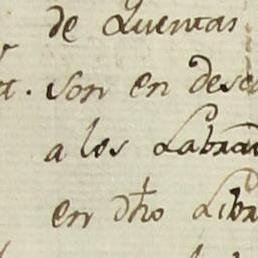 de Quentas
son en desc
a los Labrad
en dho Libr